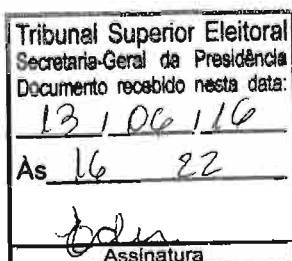 Tribunal Superior Eleitoral
Secretaria-Geral da Presidência
Documento recebido nesta data:
13 / 06 / 16
Às 16 22
Assinatura